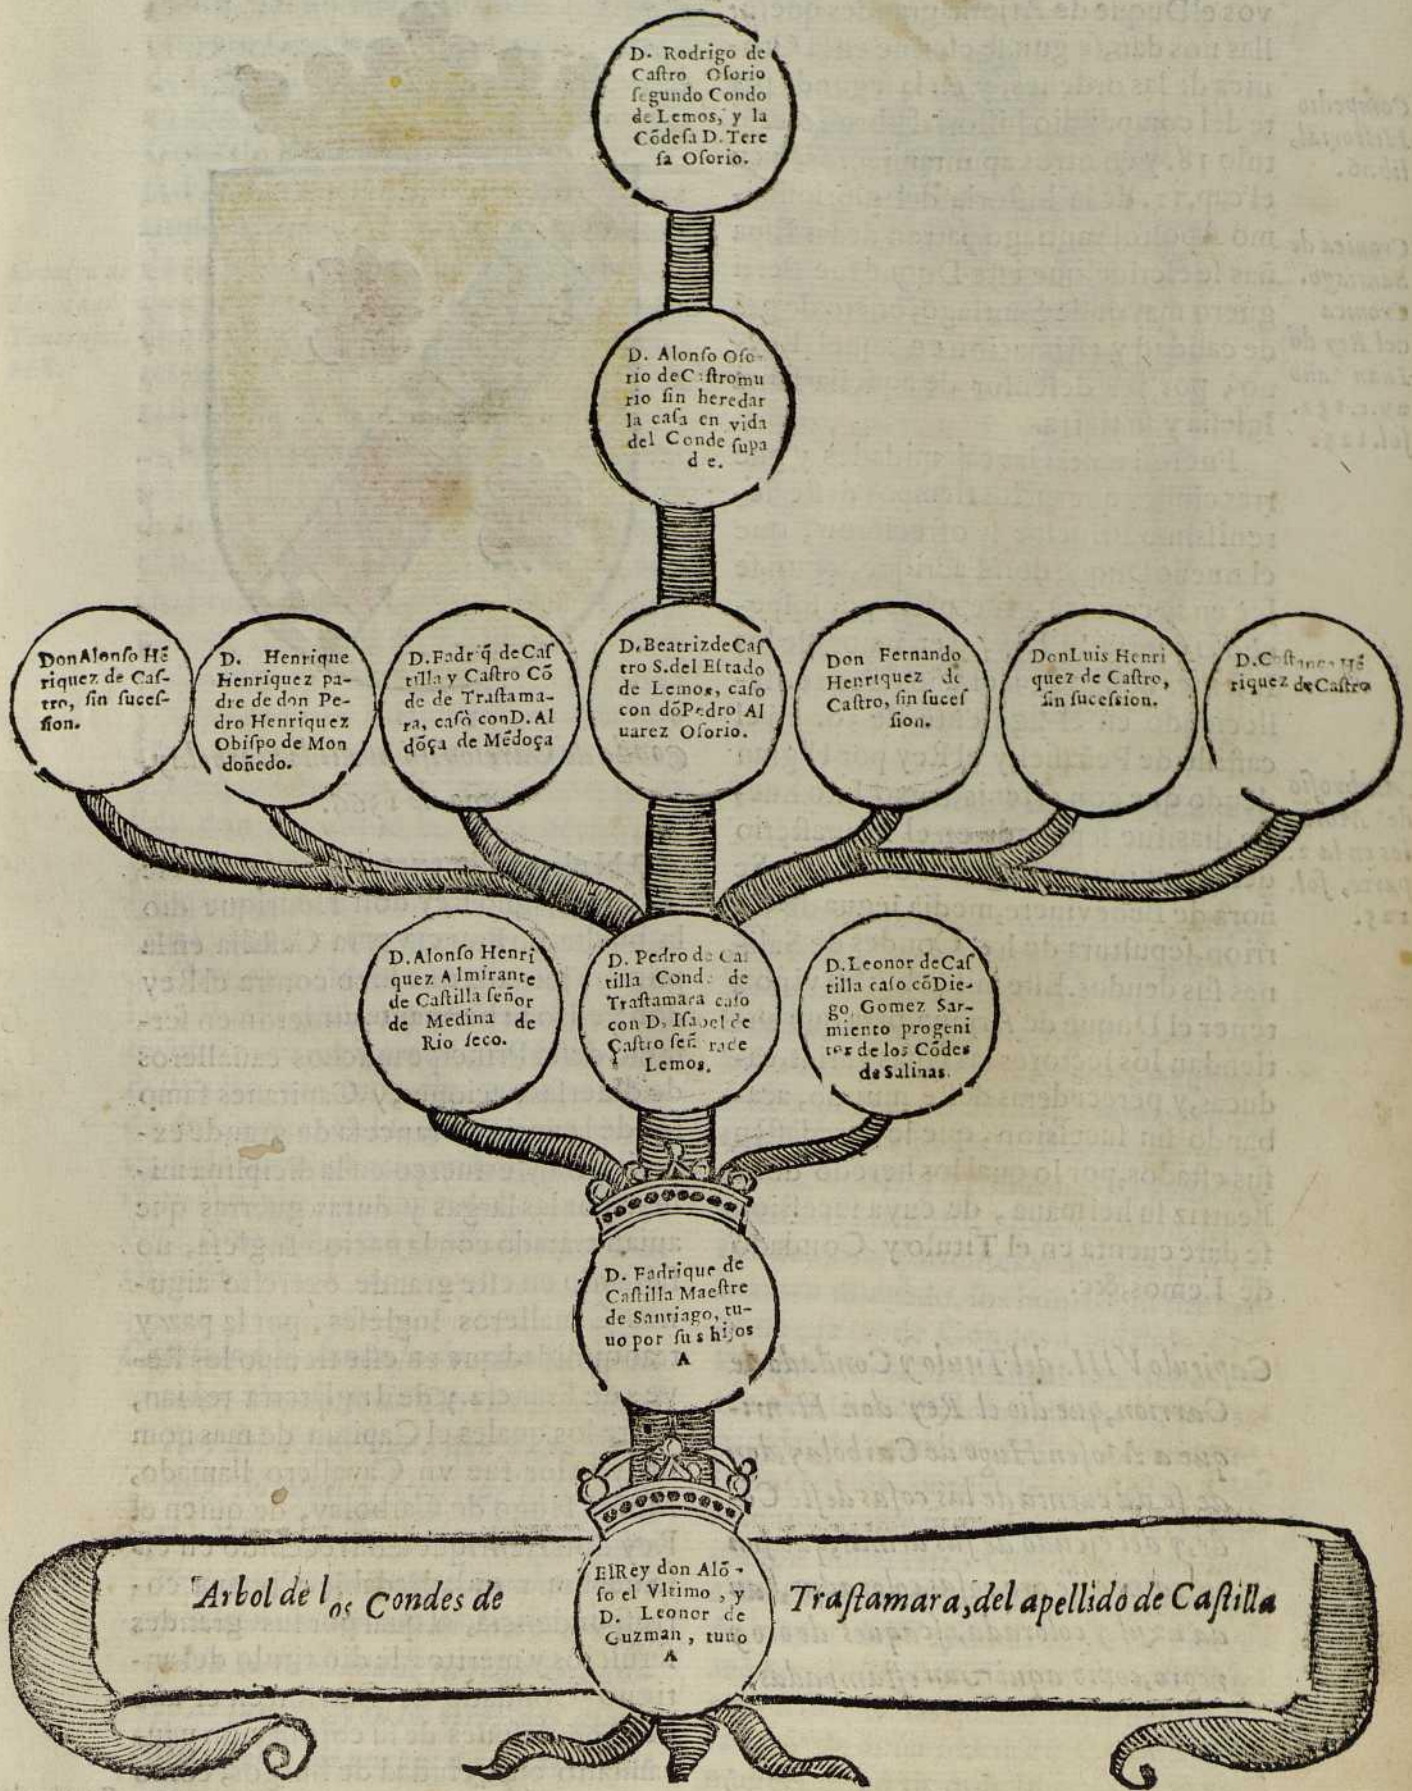 D. Rodrigo de
Caſtro Oſorio
ſegundo Condo
de Lemos, y la
Cõdeſa D. Tere
ſa Oſorio.
D. Alonſo Oſo-
rio de Caſtro mu
rio ſin heredar
la caſa en vida
del Conde ſupa
d e.
Don Alonſo Hẽ
riquez de Caſ-
tro, ſin ſuceſ-
ſion.
D. Henrique
Henriquez pa-
dre de don Pe-
dro Henriquez
Obiſpo de Mon
doñedo.
D. Fadriq̃ de Caſ
tilla y Caſtro Cõ
de de Traſtama-
ra, casò con D. Al
dõça de Mẽdoça
D. Beatriz de Caſ
tro S. del Eſtado
de Lemos, caſo
con dõ Pedro Al
uarez Oſorio.
Don Fernando
Henriquez de
Caſtro, ſin ſuceſ
ſion.
Don Luis Henri
quez de Caſtro,
ſin ſuceſsion.
D. Coſtança Hẽ
riquez de Caſtro
D. Alonſo Henri
quez Almirante
de Caſtilla ſeñor
de Medina de
Rio ſeco.
D. Pedro de Caſ
tilla Conde de
Traſtamara caſo
con D. Iſabel de
Caſtro señ ra de
Lemos.
D. Leonor de Caſ
tilla caſo cõ Die-
go Gomez Sar-
miento progeni
tor de los Cõdes
de Salinas.
D. Fadrique de
Caſtilla Maeſtre
de Santiago, tu-
uo por ſus hijos
A
El Rey don Alõ-
ſo el Vltimo, y
D. Leonor de
Guzman, tuuo
A
Arbol de los Condes de Traſtamara, del apellido de Caſtilla